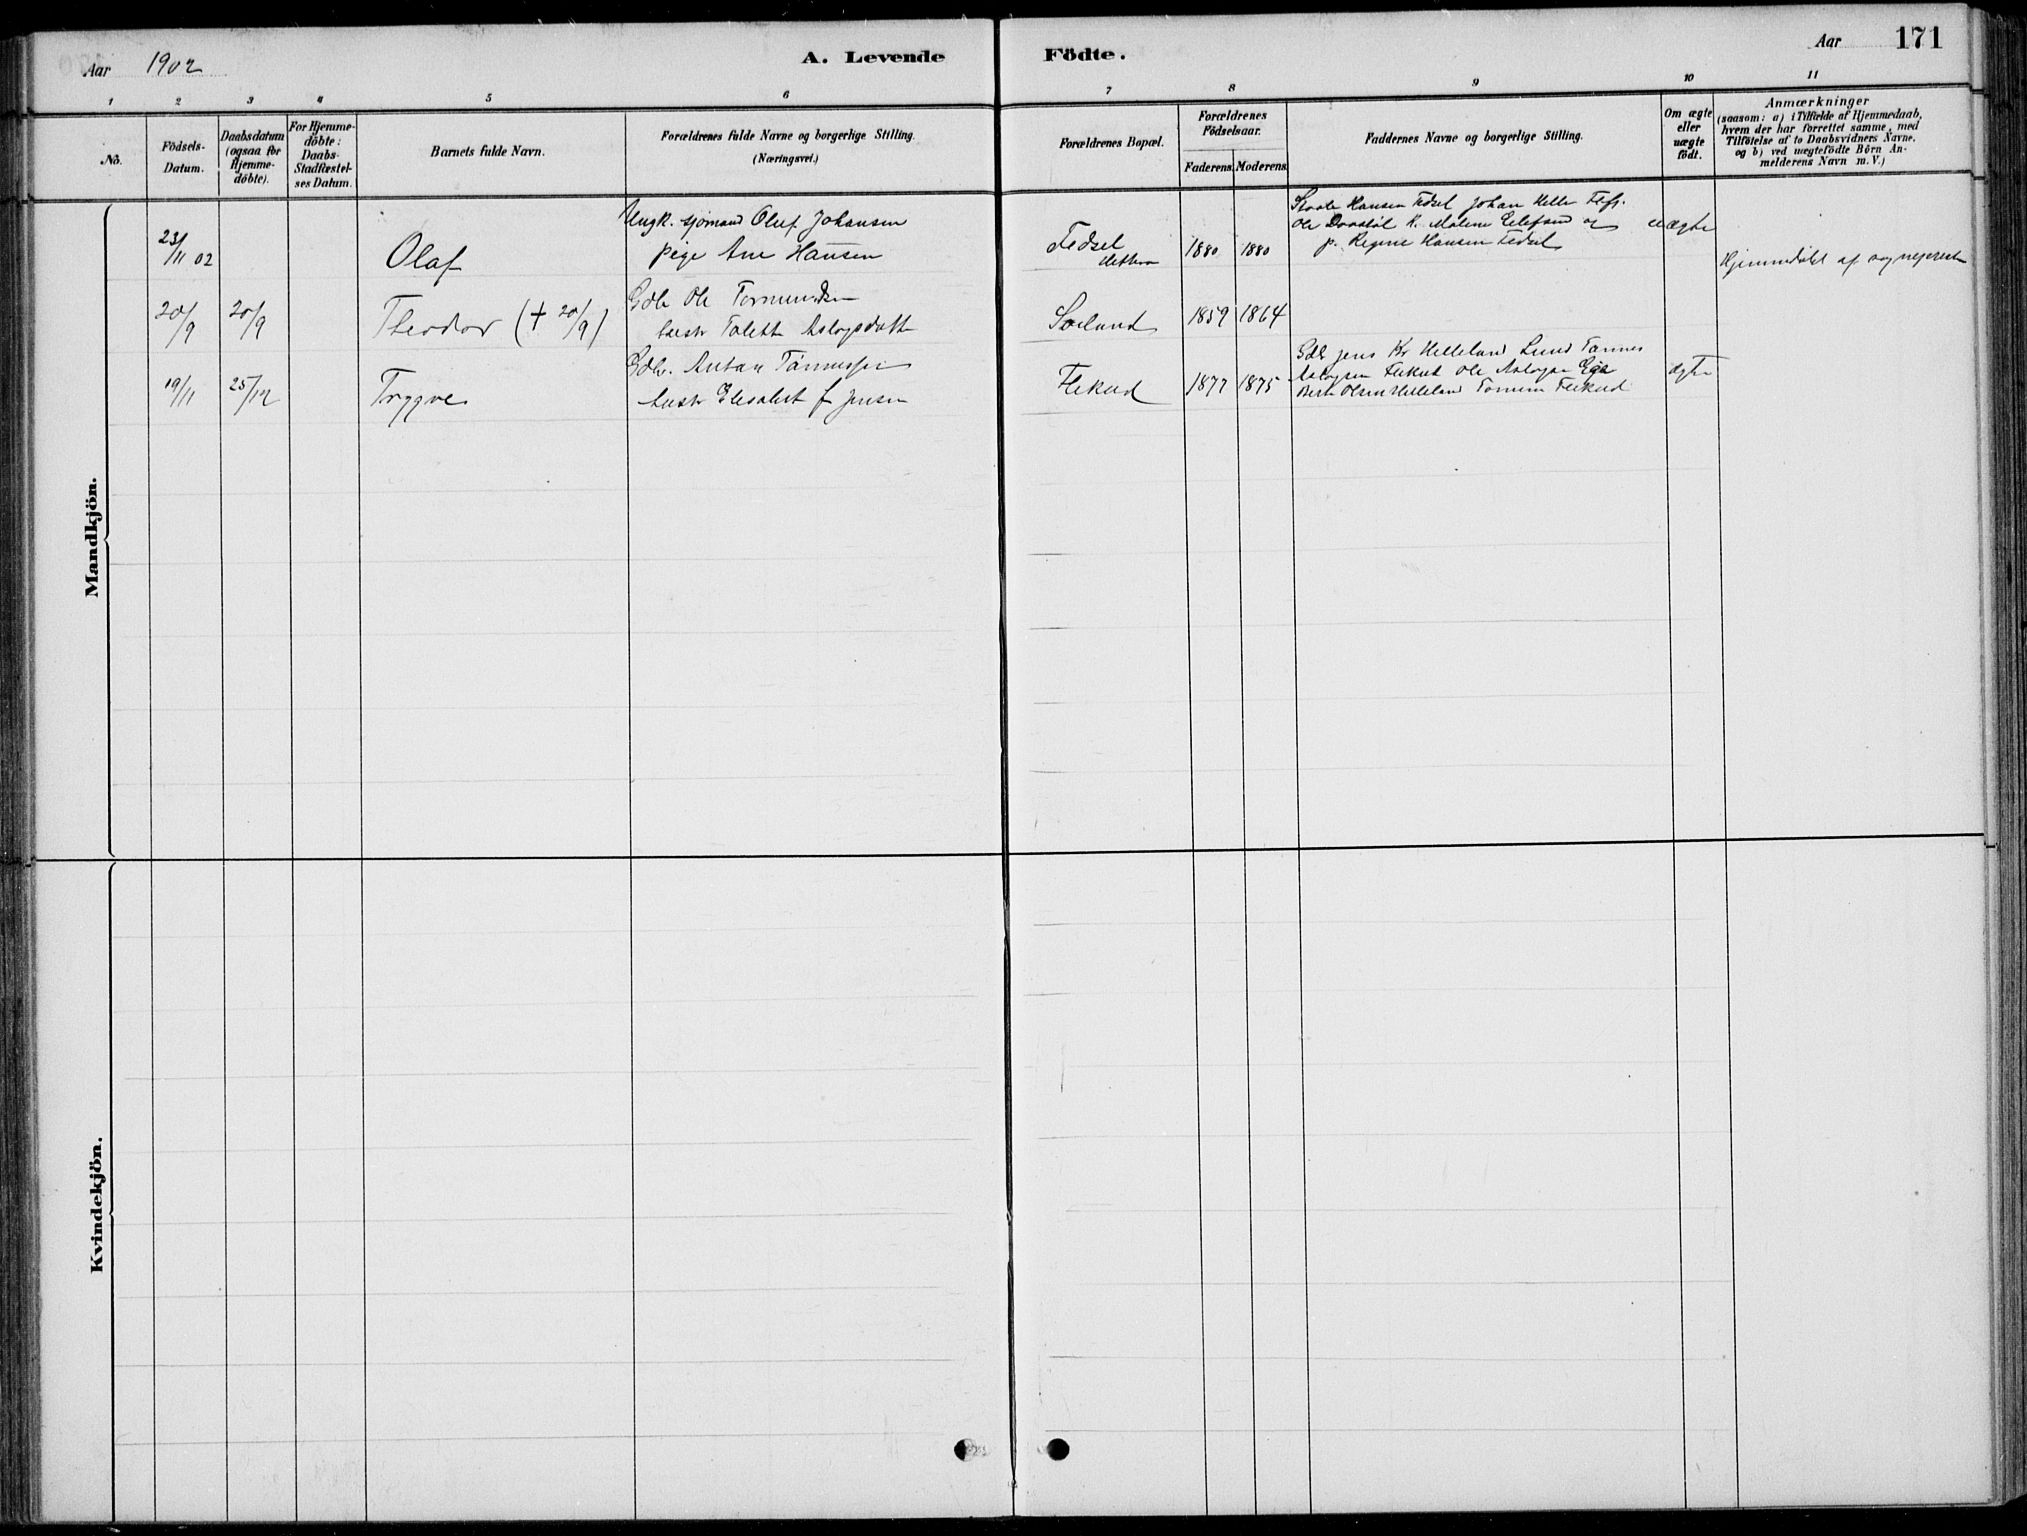 Aar 1902
A. Levende Födte.
Aar 171
1 2 3 4 5 6 7 8 9 10 11
No.
Födsels-Datum.
Daabsdatum (ogsaa for Hjemme-döbte).
For Hjemme-döbte: Daabs-Stadfæstel-ses Datum.
Barnets fulde Navn.
Forældrenes fulde Navne og borgerlige Stilling.
(Næringsvei.)
Forældrenes Bopæl.
Forældrenes Födselsaar.
Faderens. Moderens.
Faddernes Navne og borgerlige Stilling.
Om ægte eller uægte födt.
Anmærkninger
(saasom: a) i Tilfælde af Hjemmedaab,
hvem der har forrettet samme, med
Tilföielse af to Daabsvidners Navne.
og b) ved uægtefödte Börn An-
melderens Navn m. V.)
Mandkjön.
23/11 02
Olaf
Ungk. sjømand Oluf Johansen
pige Ane Hansen
Fedsel
1880 1880
Hansen Fedsel Johan Helle
Ole R. Malene og
p. Regine Hansen Fedsel
uægte
Hjemmedøbt af sogneprest
20/9 20/9
Theodor (+ 20/9)
Gdb Ole
hustr Tolette Aslagsdatt
1859 1864
19/11 25/12
Trygve
Gdb. Anton Tønnessen
hustr Elisabet f Jensen
Flekud
1877 1875
Gdb Jens Kr Helleland Lund Tønnes
Aslagsen Flekud Ole Aslagsen Eie
Berte Olsen Helleland Flekud
ægte
Kvindekjön.